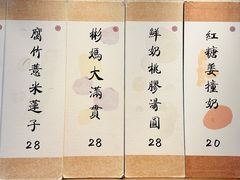 紅糖姜撞奶
20
鮮奶桃膠湯圓
28
彬媽大滿貫
28
腐竹薏米蓮子
28